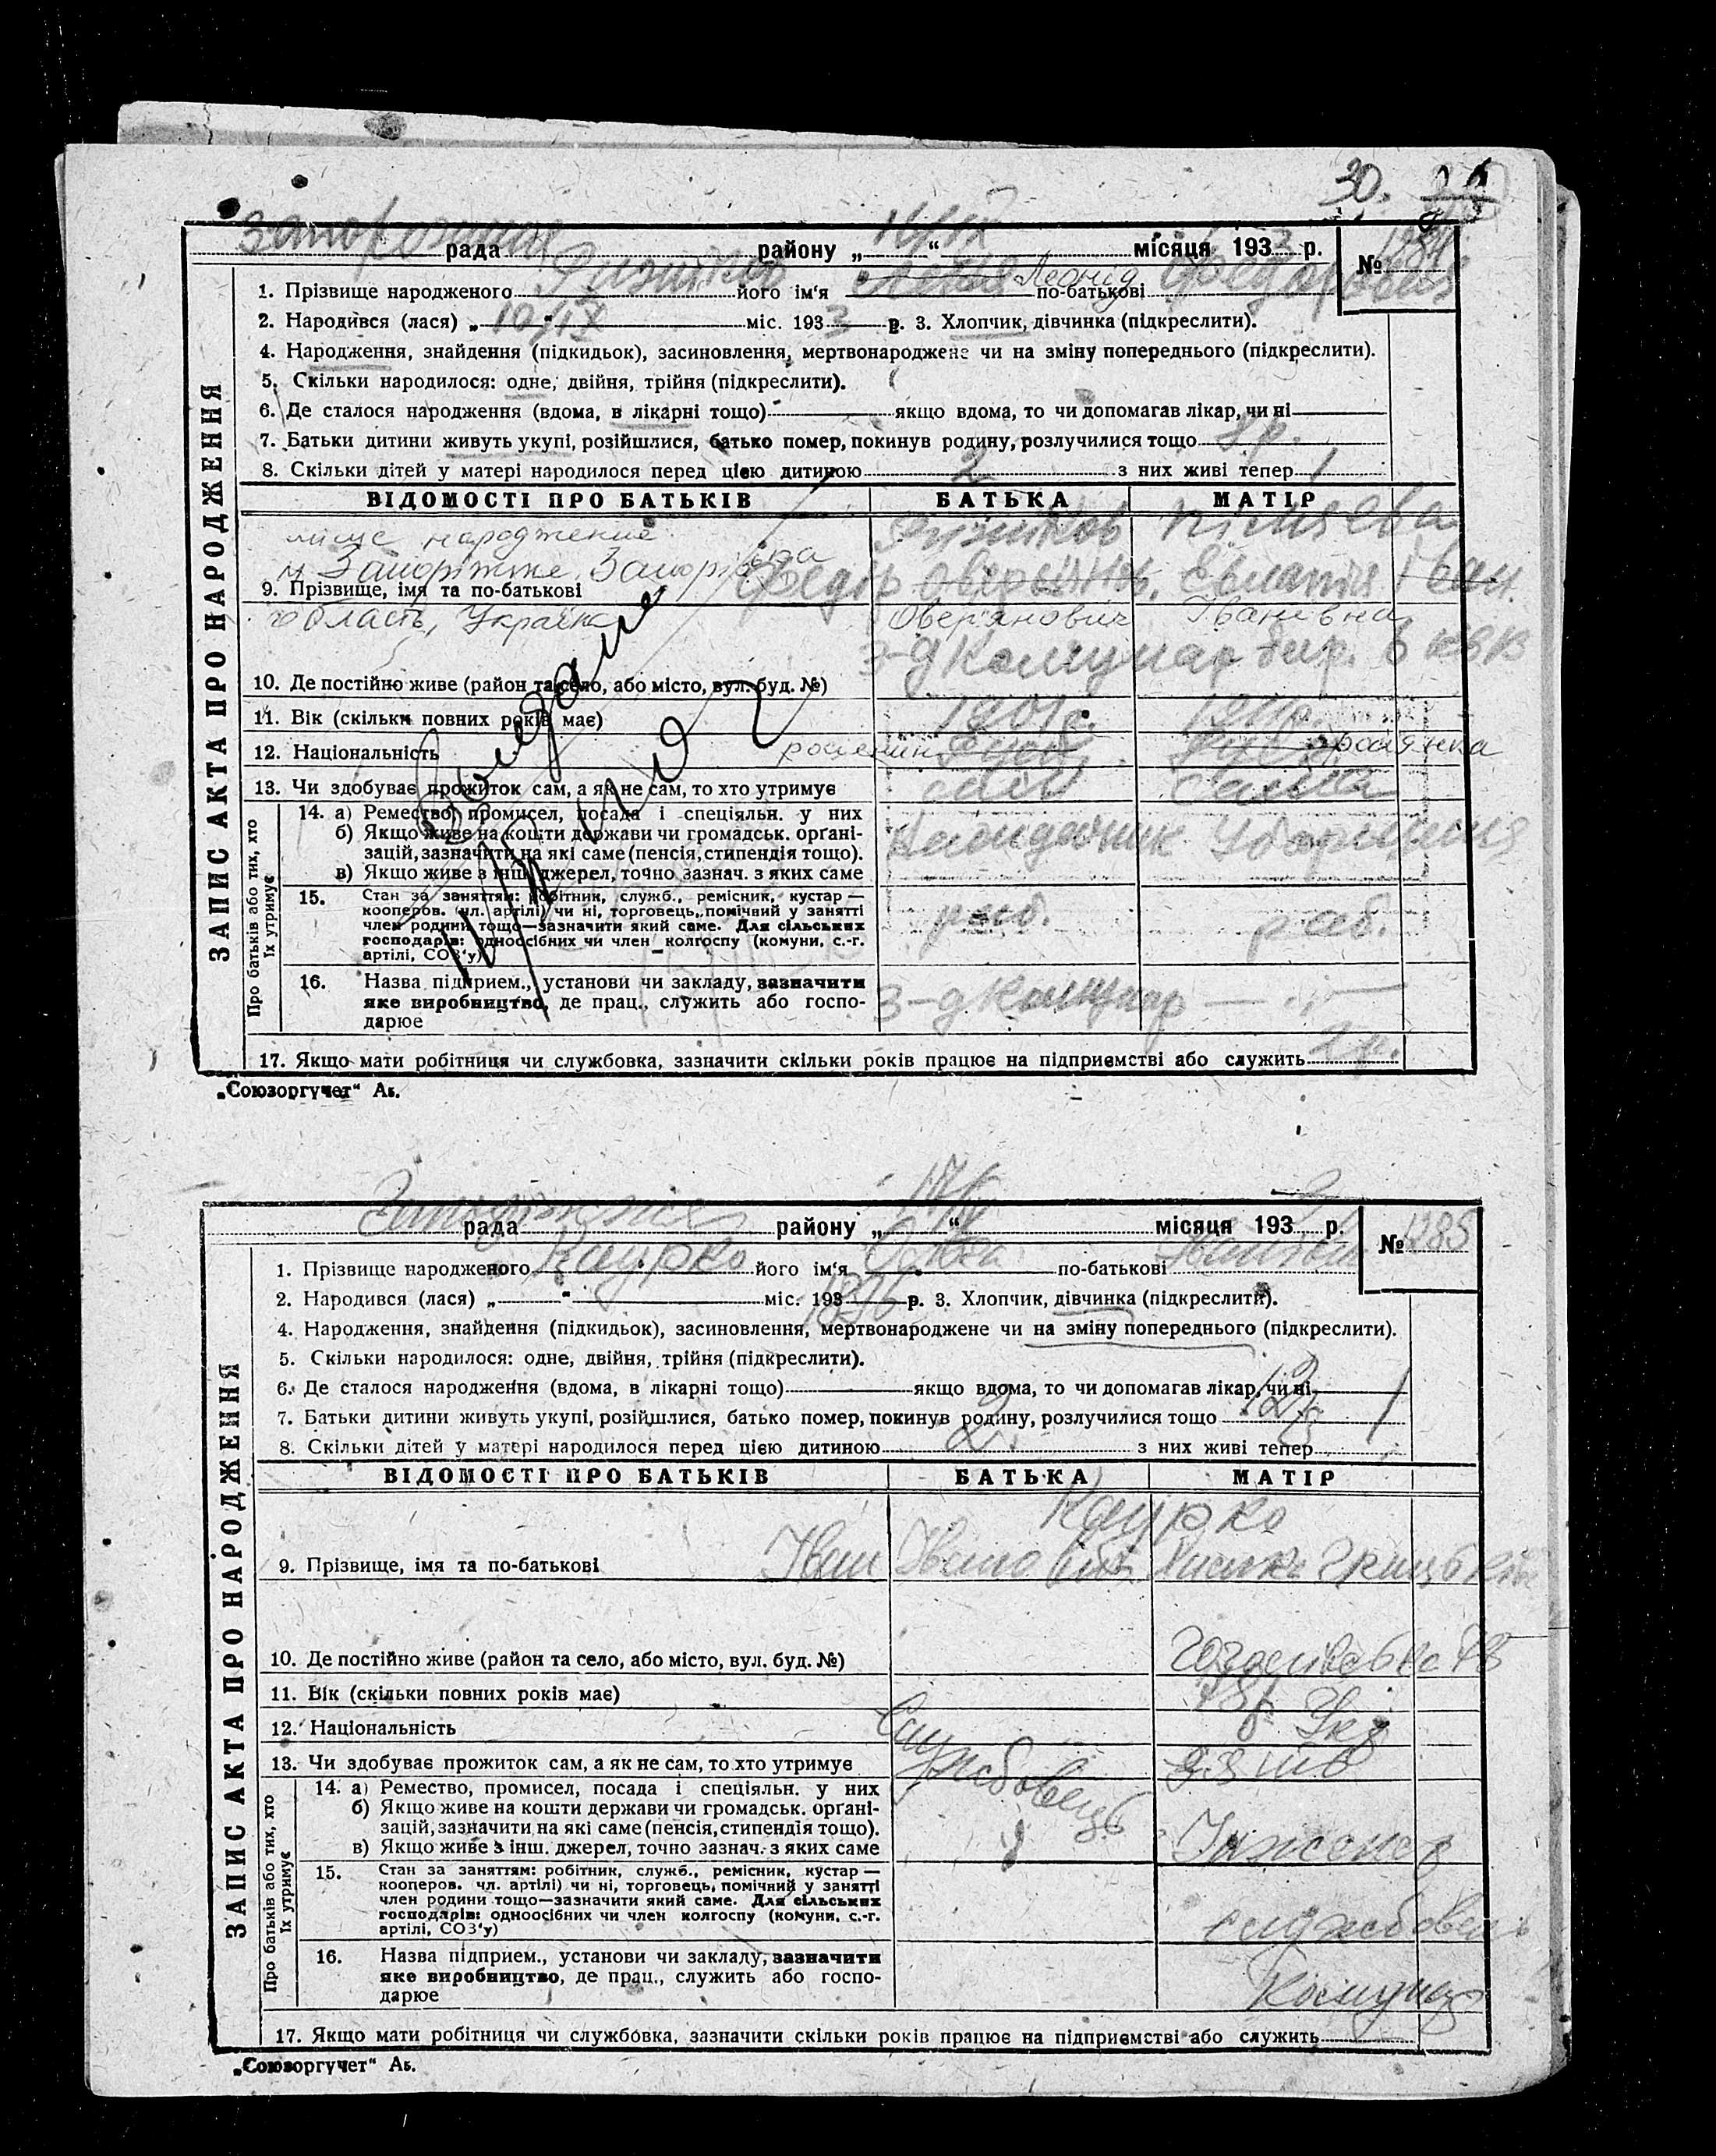 30.
Запоріжжя рада району „16/IX“ місяця 1933 р. № 1284
1. Прізвище народженого його ім‘я Леонид по-батькові Федорович
2. Народився (лася) „10/IX“ міс. 1933 р. 3. Хлопчик, дівчинка (підкреслити).
4. Народження, знайдення (підкидьок), засиновлення, мертвонароджене чи на зміну попереднього (підкреслити).
5. Скільки народилося: одне, двійня, трійня (підкреслити).
6. Де сталося народження (вдома, в лікарні тощо) якщо вдома, то чи допомагав лікар, чи ні
7. Батьки дитини живуть укупі, розійшлися, батько помер, покинув родину, розлучилися тощо 8 р.
8. Скільки дітей у матері народилося перед цією дитиною 2 з них живі тепер 1
ЗАПИС АКТА ПРО НАРОДЖЕННЯ
ВІДОМОСТІ ПРО БАТЬКІВ БАТЬКА МАТІР
місце народження
м Запоріжже, Запорізька Федір Іван.
9. Прізвище, імя та по-батькові
область, Україна Овер'янович Іванівна
з-д Комунар 6
10. Де постійно живе (район та село, або місто, вул. буд. №)
11. Вік (скільки повних років має) 1901 р. 1911 р.
12. Національність росіянин росіянка
13. Чи здобуває прожиток сам, а як не сам, то хто утримує сам сама
Про батьків або тих, хто їх утримує
14. а) Ремество, промисел, посада і спеціяльн. у них
б) Якщо живе на кошти держави чи громадськ. орґані-
зацій, зазначити на які саме (пенсія, стипендія тощо).
в) Якщо живе з інш. джерел, точно зазнач. з яких саме
15. Стан за заняттям: робітник, служб., ремісник, кустар —
кооперов. чл. артілі) чи ні, торговець, помічний у занятті
член родини тощо—зазначити який саме. Для сільських
господарів: одноосібних чи член колгоспу (комуни, с.-г.
артілі, СОЗ‘у)
роб. раб.
16. Назва підприєм., установи чи закладу, зазначити
яке виробництво, де прац., служить або госпо-
дарює
з-д Комунар — „ —
17. Якщо мати робітниця чи службовка, зазначити скільки років працює на підприємстві або служить 2 р.
„Союзоргучет“ Аб.
рада району „ “ місяця 193 р. № 1285
1. Прізвище народженого Каурко його ім‘я Ольга по-батькові
2. Народився (лася) „ “ міс. 193 1896 р. 3. Хлопчик, дівчинка (підкреслити).
4. Народження, знайдення (підкидьок), засиновлення, мертвонароджене чи на зміну попереднього (підкреслити).
5. Скільки народилося: одне, двійня, трійня (підкреслити).
6. Де сталося народження (вдома, в лікарні тощо) якщо вдома, то чи допомагав лікар, чи ні
7. Батьки дитини живуть укупі, розійшлися, батько помер, покинув родину, розлучилися тощо
8. Скільки дітей у матері народилося перед цією дитиною 2. з них живі тепер
ЗАПИС АКТА ПРО НАРОДЖЕННЯ
ВІДОМОСТІ ПРО БАТЬКІВ БАТЬКА МАТІР
Каурко
9. Прізвище, імя та по-батькові Іван Іванович
10. Де постійно живе (район та село, або місто, вул. буд. №)
11. Вік (скільки повних років має)
12. Національність Укр
13. Чи здобуває прожиток сам, а як не сам, то хто утримує
Службовець
Про батьків або тих, хто їх утримує
14. а) Ремество, промисел, посада і спеціяльн. у них
б) Якщо живе на кошти держави чи громадськ. орґані-
зацій, зазначити на які саме (пенсія, стипендія тощо).
в) Якщо живе з інш. джерел, точно зазнач. з яких саме
Інженер
15. Стан за заняттям: робітник, служб., ремісник, кустар —
кооперов. чл. артілі) чи ні, торговець, помічний у занятті
член родини тощо—зазначити який саме. Для сільських
господарів: одноосібних чи член колгоспу (комуни, с.-г.
артілі, СОЗ‘у)
службовець
16. Назва підприєм., установи чи закладу, зазначити
яке виробництво, де прац., служить або госпо-
дарює
Комунар
17. Якщо мати робітниця чи службовка, зазначити скільки років працює на підприємстві або служить
„Союзоргучет“ Аб.